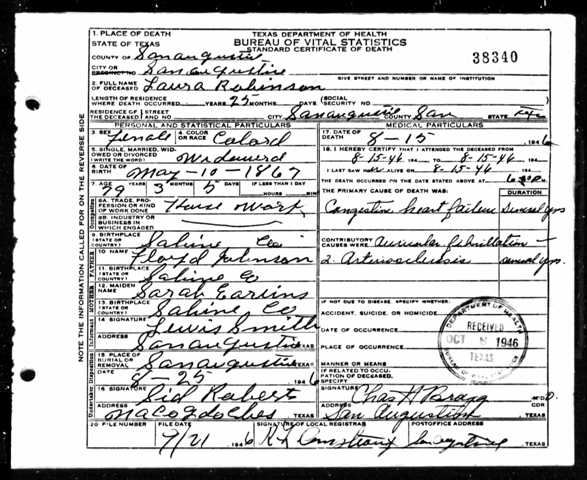 1. PLACE OF DEATH TEXAS DEPARTMENT OF HEALTH
STATE OF TEXAS BUREAU OF VITAL STATISTICS
STANDARD CERTIFICATE OF DEATH
COUNTY OF San augustine 38340
CITY OR PRECINCT NO. San augustine GIVE STREET AND NUMBER OR NAME OF INSTITUTION
2. FULL NAME OF DECEASED Laura Robinson
LENGTH OF RESIDENCE WHERE DEATH OCCURRED YEARS 25 MONTHS DAYS SOCIAL SECURITY NO.
RESIDENCE OF THE DECEASED STREET AND NO. CITY San augustine COUNTY San STATE
PERSONAL AND STATISTICAL PARTICULARS MEDICAL PARTICULARS
3. SEX Female 4. COLOR OR RACE Colord 17. DATE OF DEATH 8-15- 1946
5. SINGLE, MARRIED, WIDOWED OR DIVORCED (WRITE THE WORD) Widowerd 18. I HEREBY CERTIFY THAT I ATTENDED THE DECEASED FROM
8-15-46 194 TO 8-15-46 194
6. DATE OF BIRTH May-10-1867 I LAST SAW ALIVE ON 8-15-46 194
THE DEATH OCCURRED ON THE DATE STATED ABOVE AT
7. AGE 79 YEARS 3 MONTHS 5 DAYS IF LESS THAN 1 DAY HOURS MIN
THE PRIMARY CAUSE OF DEATH WAS: DURATION
8A. TRADE, PROFESSION OR KIND OF WORK DONE House Work Congestive heart failure Several yrs
8B. INDUSTRY OR BUSINESS IN WHICH ENGAGED
9. BIRTHPLACE (STATE OR COUNTY) Sabine Co CONTRIBUTORY CAUSES WERE: Auricular fibrillation -
10. NAME Floyd Johnson 2. Arteriosclerosis several yrs.
11. BIRTHPLACE (STATE OR COUNTY) Sabine Co
12. MAIDEN NAME Sarah
13. BIRTHPLACE (STATE OR COUNTY) Sabine Co IF NOT DUE TO DISEASE, SPECIFY WHETHER:
ACCIDENT, SUICIDE, OR HOMICIDE
14. SIGNATURE Lewis Smith DATE OF OCCURRENCE
ADDRESS San augustine TEXAS PLACE OF OCCURRENCE
15. PLACE OF BURIAL OR REMOVAL San augustine TEXAS MANNER OR MEANS
DATE 8 25 1946 IF RELATED TO OCCUPATION OF DECEASED, SPECIFY
16. SIGNATURE Sid Robert SIGNATURE Chas H M.D. OR
ADDRESS Nacogdoches TEXAS ADDRESS San Augustine TEXAS
20. FILE NUMBER FILE DATE SIGNATURE OF LOCAL REGISTRAR POSTOFFICE ADDRESS
9/21 1946 TEXAS
NOTE THE INFORMATION CALLED FOR ON THE REVERSE SIDE
Occupation
FATHER
MOTHER
Informant
Undertaker Disposition
DEPARTMENT OF HEALTH
RECEIVED
OCT 1946
TEXAS
BUREAU OF VITAL STATISTICS